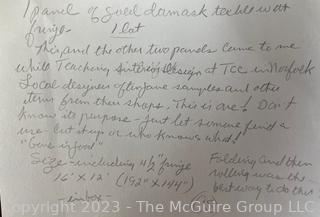 1 panel of gold damask textile w at
fringe. 1 lot
This, and the other two panels came to me
while Teaching Interior Design at TCC in Norfolk
Local designer often gave samples and other
items from their shops. This is one! Don't
know its purpose - just let someone find a
use - cut it up or who knows what!
"Gone is good"
Size - including 4½" fringe
16' x 12' (192" x 144")
- in box -
Folding and then
rolling was the
best way to do this
Copyright 2023 - The McGuire Group LLC